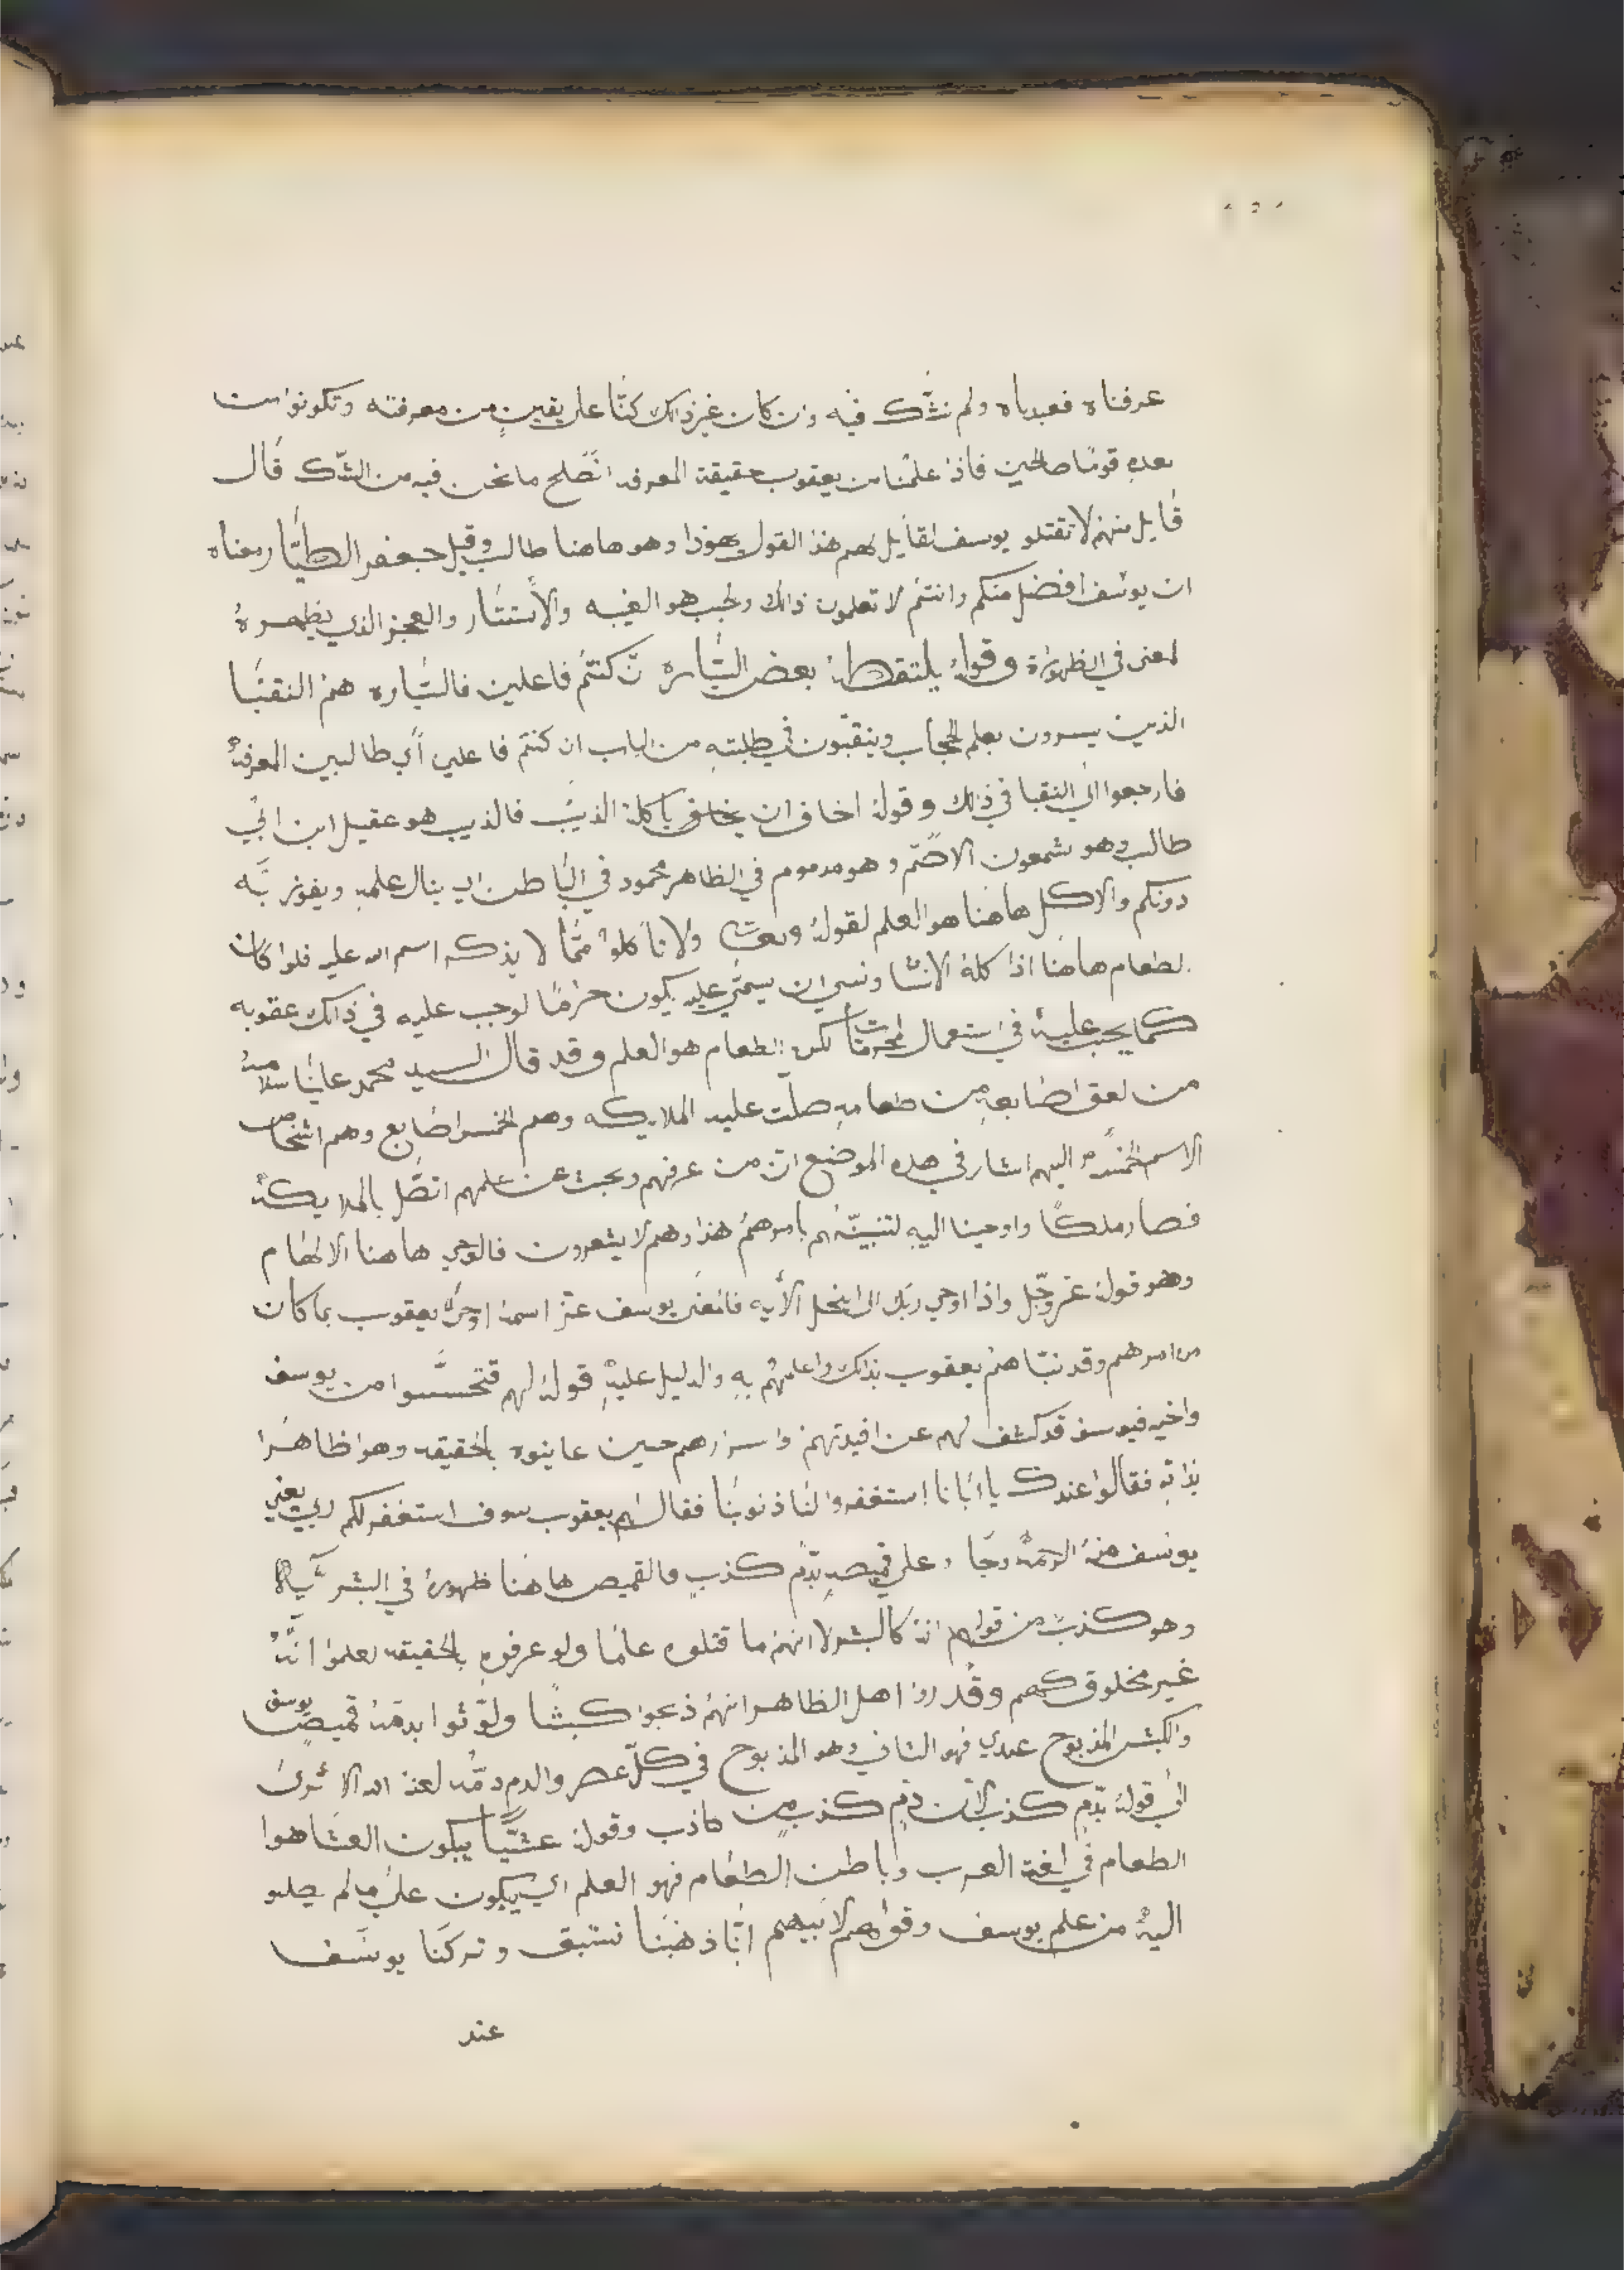 عرفناه فعبدناه ولم نشّك فيه وان كان غير ذالك كنّا على يقينٍ من معرفته وتكونوا من
بعدهِ قومًا صالحين فاذا علمنا من يعقوب حقيقة المعرفه انصلح ما نحن فيه من الشّك قال
قايل منهم لا تقتلو يوسف القايل لهم هذ القول يهوذا وهو هاهنا طالب وقيل جعفر الطيّار ومعناه
ان يوسف افضل منكم وانتم لا تعلمون ذالك والجب هو الغيبه والأستتار والعجز الذي يظهره
المعنى في الظهورة وقوله يلتقطهُ بعض السّياره ان كنتم فاعلين فالسّياره هم النقبا
الذين يسيرون بعلم الحجاب وينقبّون في طلبتهِ من الباب ان كنتم فاعلين أي طالبين المعرفة
فارجعوا الى النقبا في ذالك وقولهُ اخاف ان ياكلهُ الذيب فالذيب هو عقيل ابن ابي
طالب وهو شمعون الاصمّ وهو مدموم في الظاهر محمود في الباطن اي ينال علمهِ ويفوز به
دونكم والاكل هاهنا هو العلم لقوله ولا تاكلوا ممّا لا يذكر اسم الله عليه فلوا كان
الطعام هاهنا اذا كله الانسا ونسي ان يسمّي عليه يكون حرمًا لوجب عليه في ذالك عقوبه
كما يجب عليه في استعمال المحرمات لكن الطعام هو العلم وقد قال السيد محمد علينا سلامهُ
من لعق اصابعهِ من طعامهِ صلّت عليه الملايكه وهم الخمس اصابع وهم اشخاص
الاسم الخمسه اليهم اشار في هده الموضع انّ من عرفهم وبحث عن علمهم اتصّل بالملايكة
فصار ملكًا واوحينا اليه لتنبيّنهم بامرهم هذا وهم لا يشعرون فالوحي هاهنا الالهام
وهو قولهُ عز وجّل واذا اوحي ربّك الى النحل الأيه فالمعنى يوسف عزّ اسمهُ اوحى الى يعقوب بما كان
من امرهم وقد نبّاهم يعقوب بذالك واعلمهُم بهِ والدليل عليهِ قولهُ لهم فتحسّسوا من يوسف
واخيه فيوسف قد كشف لهم عن افيدتهم واسرارهم حين عاينوه بالحقيقه وهوا ظاهرا
بذاتهِ فقالوا عندك يا ابانا استغفر لنا ذنوبنا فقال لهم يعقوب سوف استغفر لكم ربي يعني
يوسف منهُ الرحمة وجا وعلى قميصهِ بدمٍ كذبٍ فالقميص هاهنا ظهورهُ في البشريّه
وهو كذبٌ من قولهم انه كالبشر لانهم ما قتلوه علمًا ولو عرفوه بالحقيقه لعلموا انّهُ
غير مخلوق كهم وقد روا اهل الظاهر انهم ذبحوا كبشًا ولوّثوا بدمّهُ قميص يوسف
والكبش المذبوح عندي فهو الثاني وهو المذبوح في كلّ عصر والدم دمّه لعنهُ الله الا ترى
الى قولهُ بدمٍ كذب لانّ دمٍ كذبٍ من كاذب وقوله عشيّاً يبكون العشا هوا
الطعام في لغة العرب وباطن الطعام فهو العلم اي يبكون على ما لم يصلو
اليهُ من علم يوسف وقولهم لابيهم انّا ذهبنا نستبق وتركنا يوسف
عند